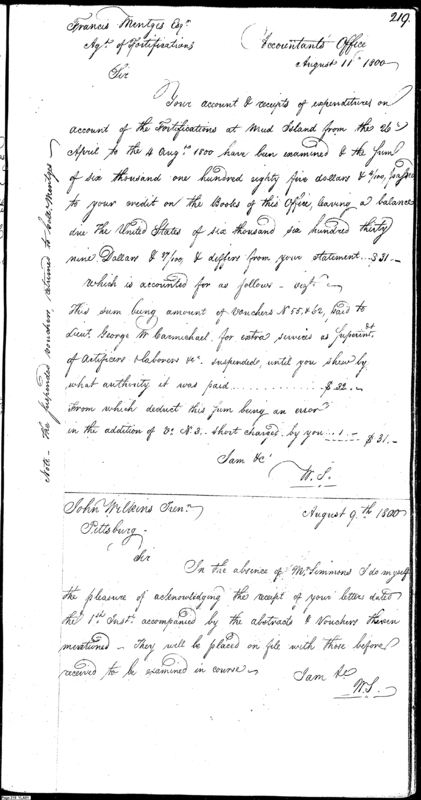 219.
Francis Mentges Esqr
Agt. of Fortifications
Accountants Office
August 11th 1800
Sir
Your account & receipts of expenditures on
account of the Fortifications at Mud Island from the 26
April to the 4 Augt. 1800 have been examined & the Sum
of six thousand one hundred eighty five dollars & /100, passed
to your credit on the Books of this Office, leaving a balance
due the United States of six thousand six hundred thirty
nine Dollars & /100, & differs from your statement ..$31.-
which is accounted for as follows - vizt.
This sum being amount of Vouchers N 55, & 62, paid to
Lieut. George W Carmichael for extra services as Superintt.
of Artificers & laborers &c. suspended, until you shew by
what authority it was paid .............. $ 32.-
From which deduct this sum being an error
in the addition of Vo. N 3. - short charged by you ...1.- $ 31.-
I am &c
W.S.
Note - the suspended vouchers, returned to Coll. Mentges
John Wilkins Junr.
Pittsburg.
August 9th 1800
Sir
In the absence of Mr. Simmons I do myself
the pleasure of acknowledging the receipt of your letters dated
the 1st Inst. accompanied by the abstracts & Vouchers therein
mentioned - They will be placed on file with those before
received to be examined in course.
I am &c
W.S.